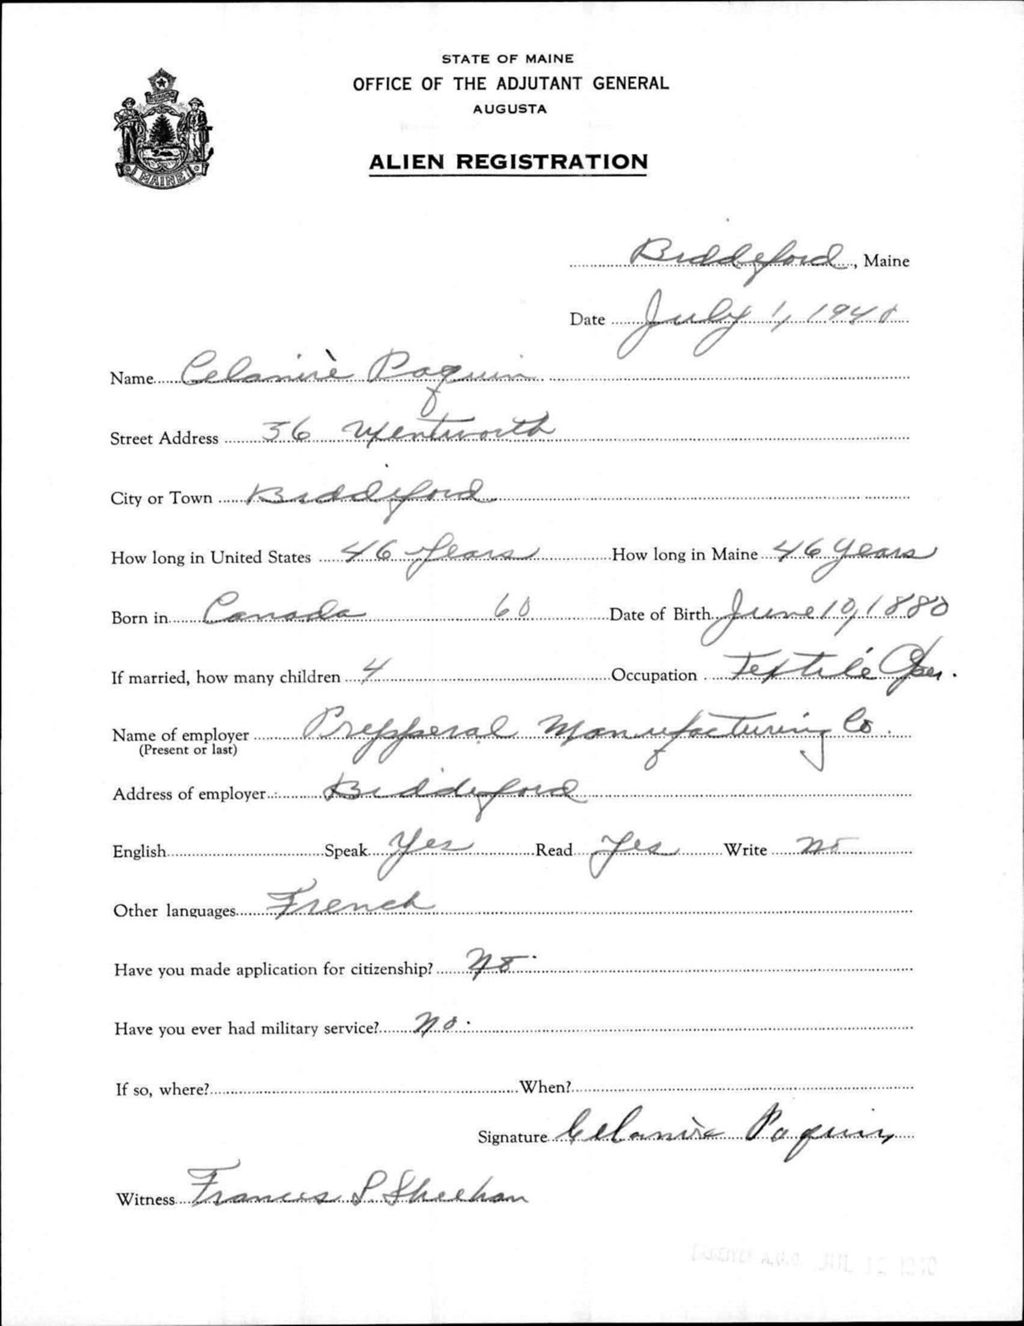 STATE OF MAINE
OFFICE OF THE ADJUTANT GENERAL
AUGUSTA
ALIEN REGISTRATION
MAINE
Biddeford, Maine
Date July 1, 1940
Name Celanirè Paquin
Street Address 36 Wentworth
City or Town Biddeford
How long in United States 46 Years How long in Maine 46 years
Born in Canada 60 Date of Birth June 10, 1880
If married, how many children 4 Occupation Textile Oper.
Name of employer Pepperal Manufacturing Co.
(Present or last)
Address of employer Biddeford
English Speak Yes Read Yes Write No
Other languages French
Have you made application for citizenship? No.
Have you ever had military service? No.
If so, where? When?
Signature Celanire Paquin
Witness Francis P Sheehan
A.G.O. JUL 12 1940